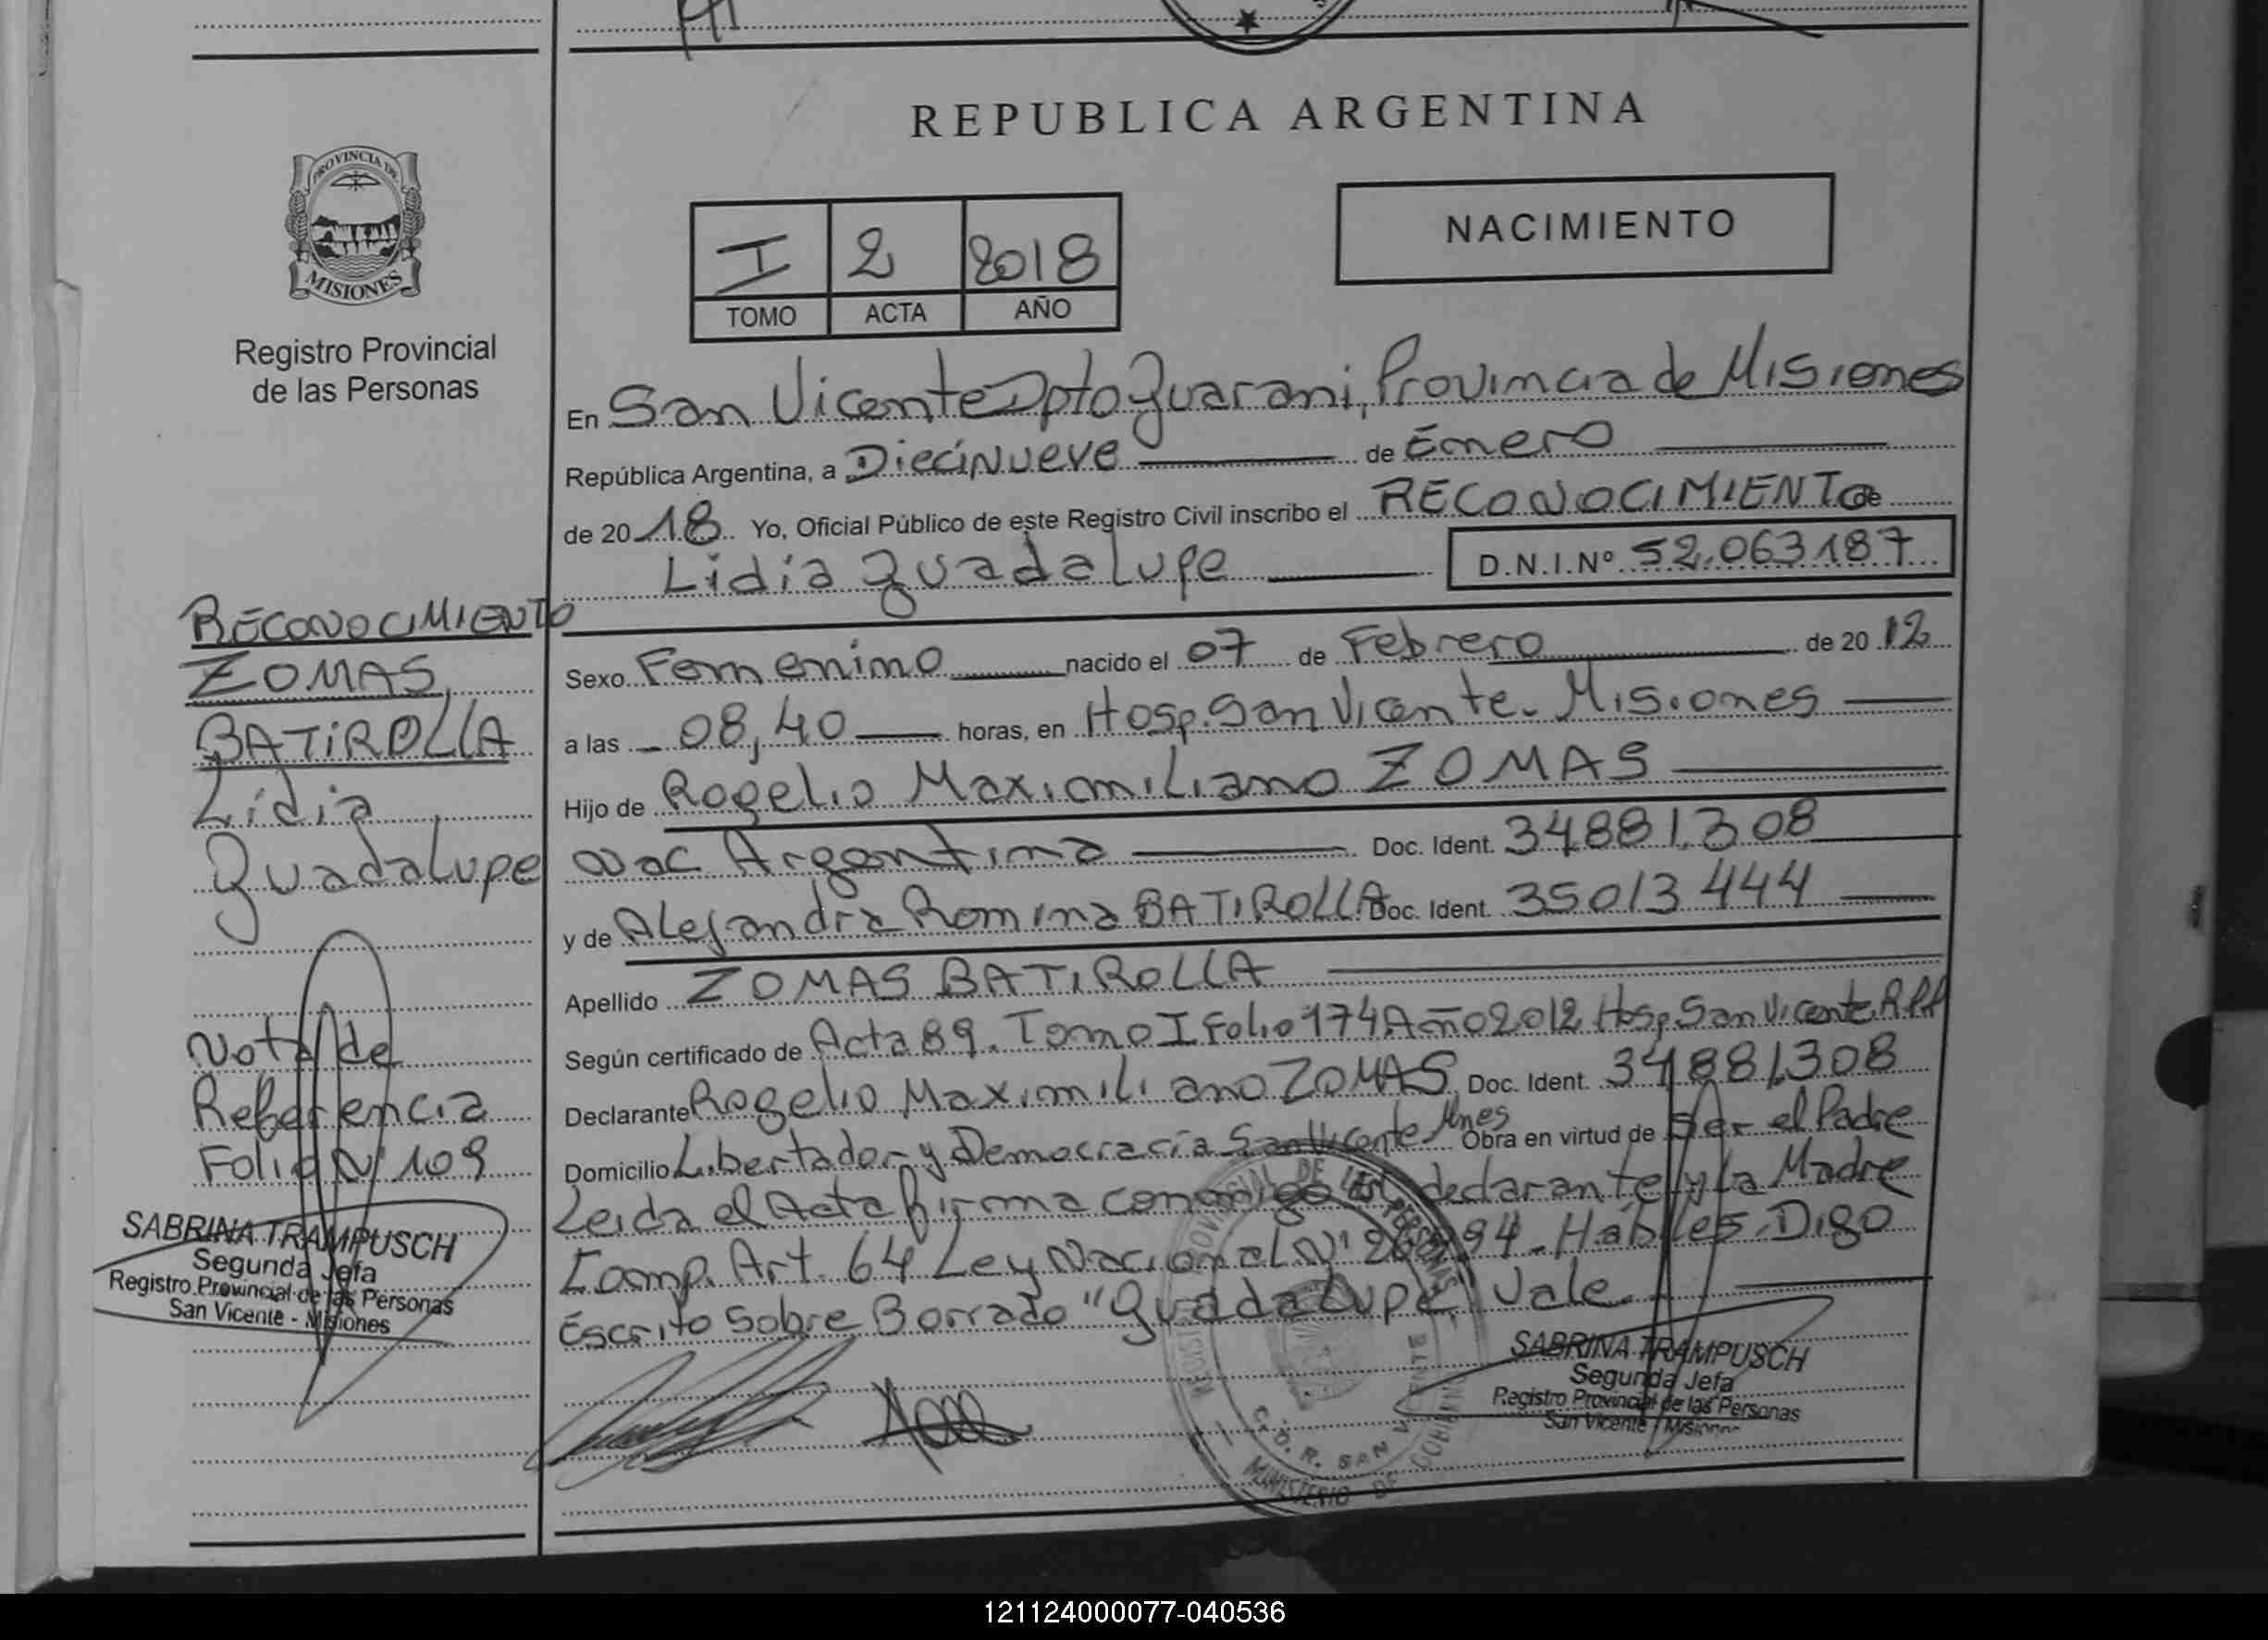 REPUBLICA ARGENTINA
PROVINCIA DE
MISIONES
Registro Provincial
de las Personas
I 2 2018
TOMO ACTA AÑO
NACIMIENTO
En San Vicente Dpto Guarani, Provincia de Misiones
República Argentina, a Diecinueve de Enero
de 2018 Yo, Oficial Público de este Registro Civil inscribo el RECONOCIMIENTO de
Lidia Guadalupe D.N.I.Nº 52.063187
Sexo Femenino nacido el 07 de Febrero de 2012
a las 08,40 horas, en Hosp. San Vicente. Misiones
Hijo de Rogelio Maximiliano ZOMAS
Nac Argentina Doc. Ident. 34881.308
y de Alejandra Romina BATIROLLA Doc. Ident. 35013444
Apellido ZOMAS BATIROLLA
Según certificado de Acta 89. Tomo I Folio 174 Año 2012 Hosp. San Vicente RPP
Declarante Rogelio Maximiliano ZOMAS Doc. Ident. 34881.308
Domicilio Libertador y Democracia San Vicente Mnes Obra en virtud de Ser el Padre
Leida el Acta firma conmigo El declarante y La Madre
Comp. Art. 64 Ley Nacional Nº 94. Hábiles. Digo
Escrito Sobre Borrado "Guadalupe" Vale.
RECONOCIMIENTO
ZOMAS
BATIROLLA
Lidia
Guadalupe
Nota de
Referencia
Folio Nº 109
SABRINA TRAMPUSCH
Segunda Jefa
Registro Provincial de las Personas
San Vicente - Misiones
SABRINA TRAMPUSCH
Segunda Jefa
Registro Provincial de las Personas
San Vicente - Misiones
C.D.R. SAN VICENTE
MINISTERIO DE GOBIERNO
121124000077-040536